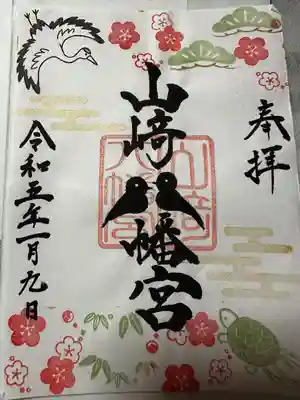 奉拝
山崎八幡宮
令和五年一月九日